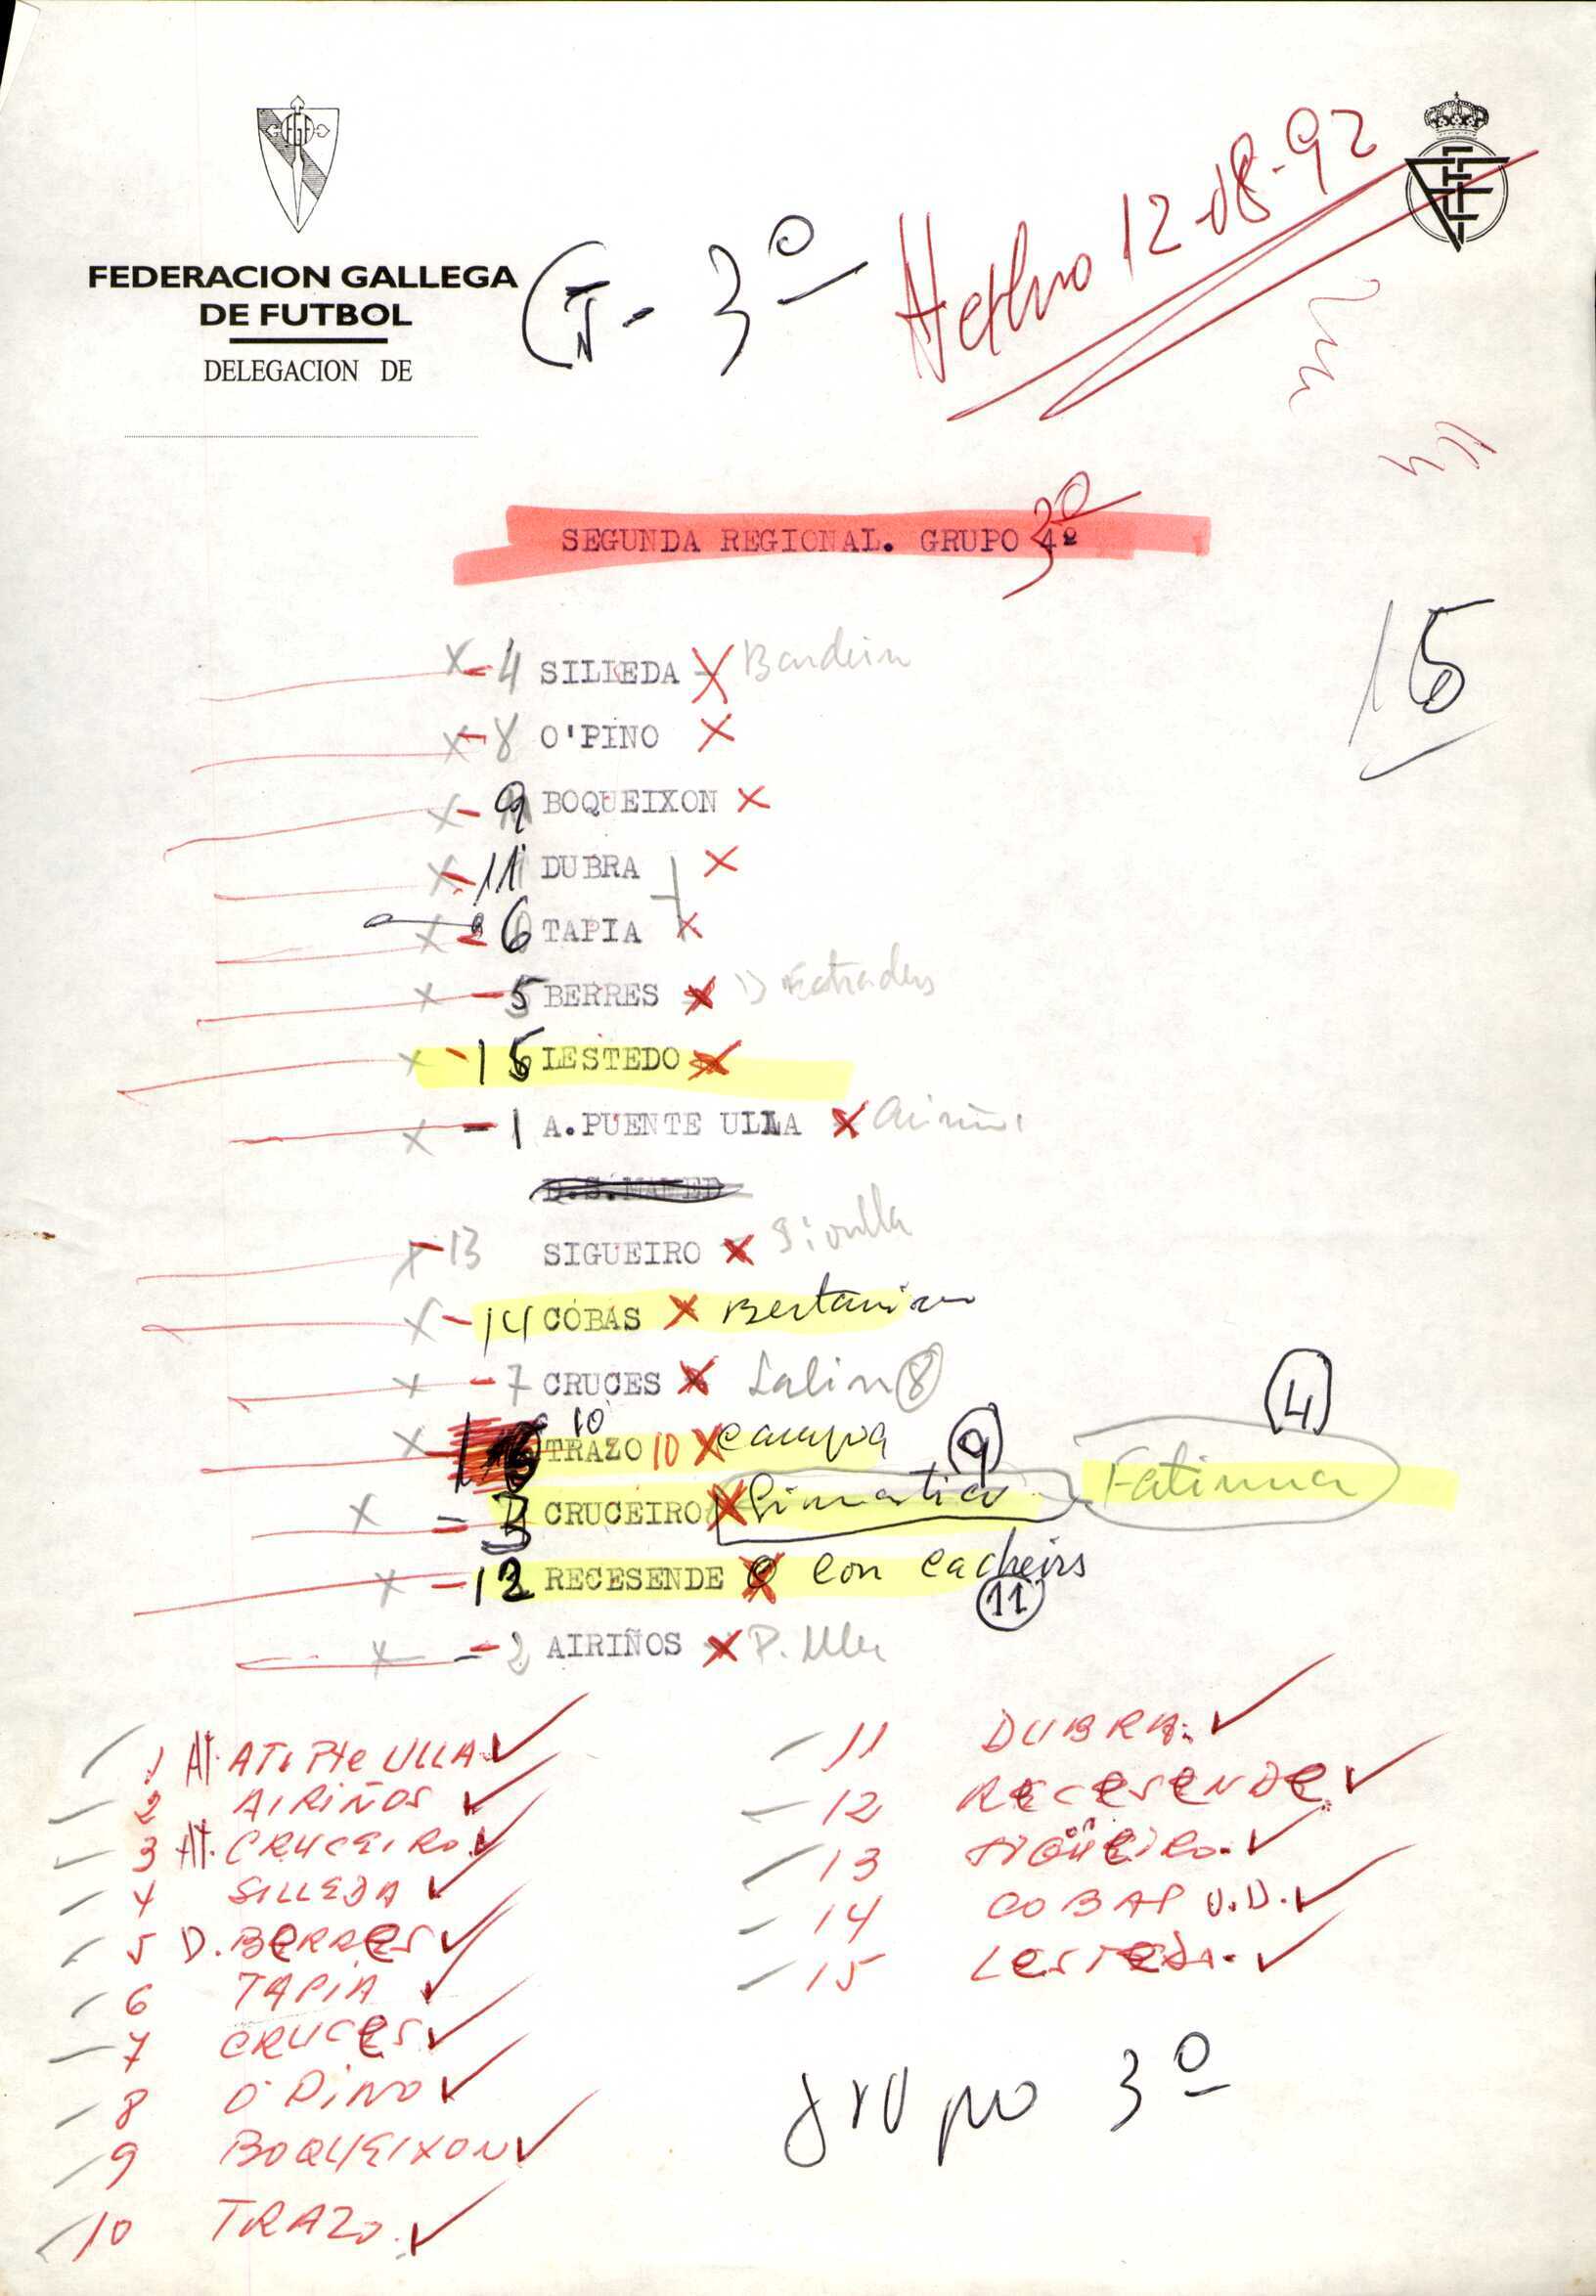 FEDERACION GALLEGA
DE FUTBOL
DELEGACION DE
G-3º
12-08-92
SEGUNDA REGIONAL. GRUPO 4º 3º
15
4 SILLEDA X
8 O'PINO X
9 BOQUEIXON X
11 DUBRA X
6 TAPIA X
5 BERRES X
15 LESTEDO X
1 A.PUENTE ULLA X
13 SIGUEIRO X
14 COBAS X
7 CRUCES X Lalin 8
10
TRAZO 10 X campa
9
4
3 CRUCEIRO X Fatima
12 RECESENDE X con cacheirs
11
2 AIRIÑOS X P. Ulla
1 At. AT. Pte ULLA
2 AIRIÑOS
3 At. CRUCEIRO
4 SILLEDA
5 D. BERRES
6 TAPIA
7 CRUCES
8 O PINO
9 BOQUEIXON
10 TRAZO
11 DUBRA
12 RECESENDE
13 SIGÜEIRO
14 COBAS U.D.
15 LESTEDO
grupo 3º